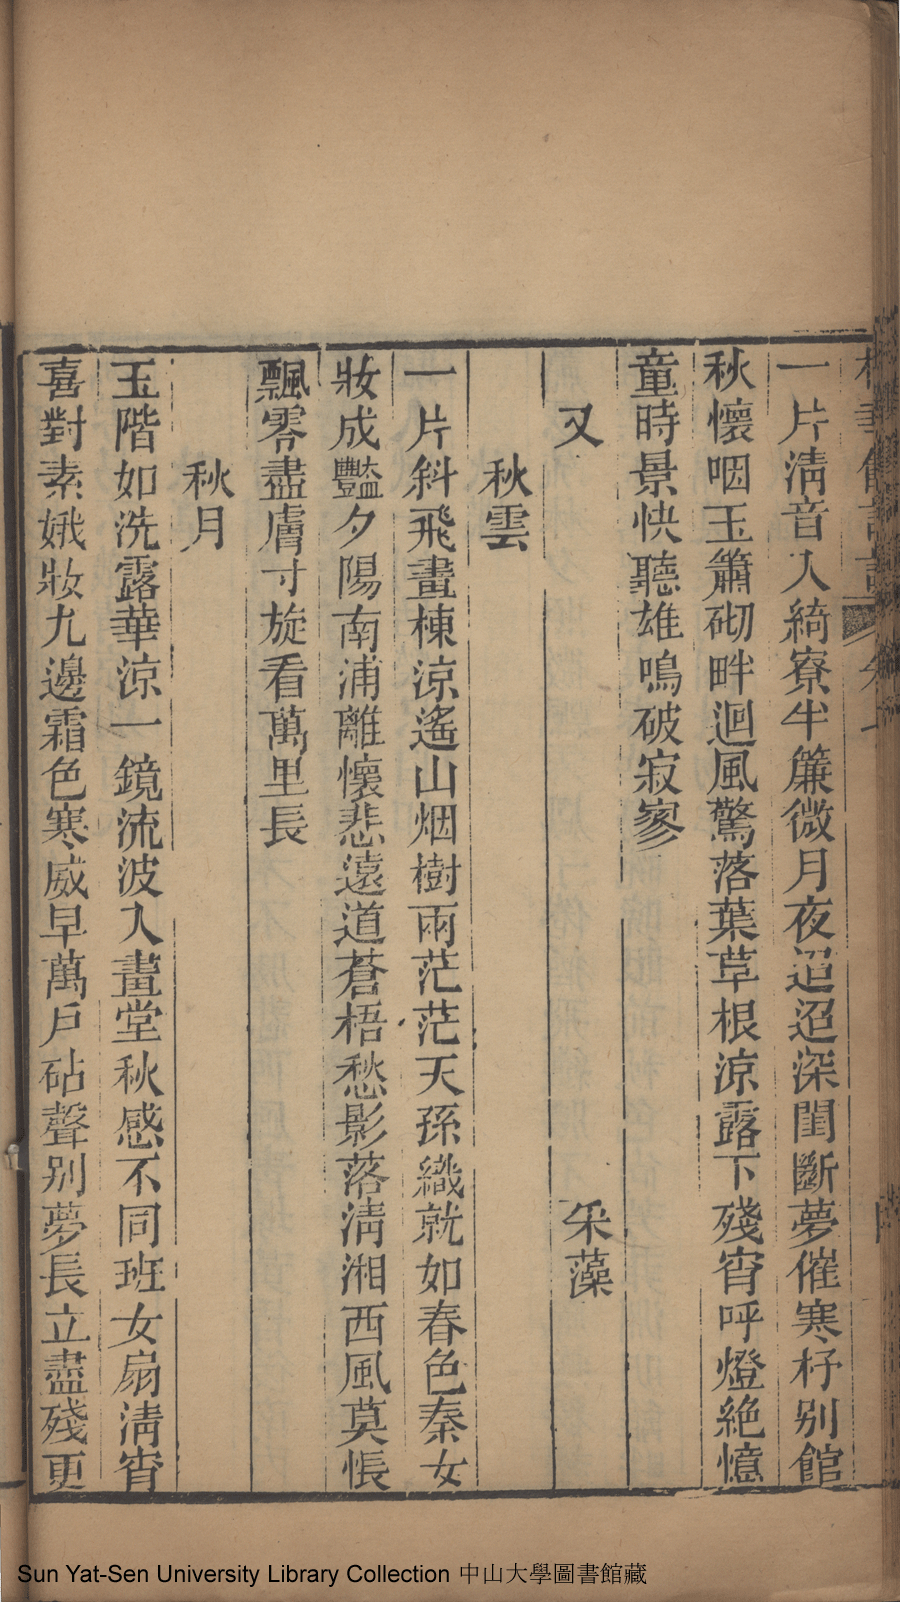 一片淸音入綺寮半簾微月夜迢迢深閨斷夢催寒杼别館
秋懷咽玉簫砌畔迴風驚落葉草根涼露下殘宵呼燈絶憶
童時景快聽雄鳴破寂寥
又 采藻
秋雲
一片斜飛畫棟涼遙山烟樹雨茫茫天孫織就如春色秦女
妝成豔夕陽南浦離懷悲遠道蒼梧愁影落淸湘西風莫悵
飄零盡膚寸旋看萬里長
秋月
玉階如洗露華涼一鏡流波入畫堂秋感不同班女扇淸宵
喜對素娥妝九邊霜色寒威早萬戶砧聲别夢長立盡殘更
Sun Yat-Sen University Library Collection 中山大學圖書館藏